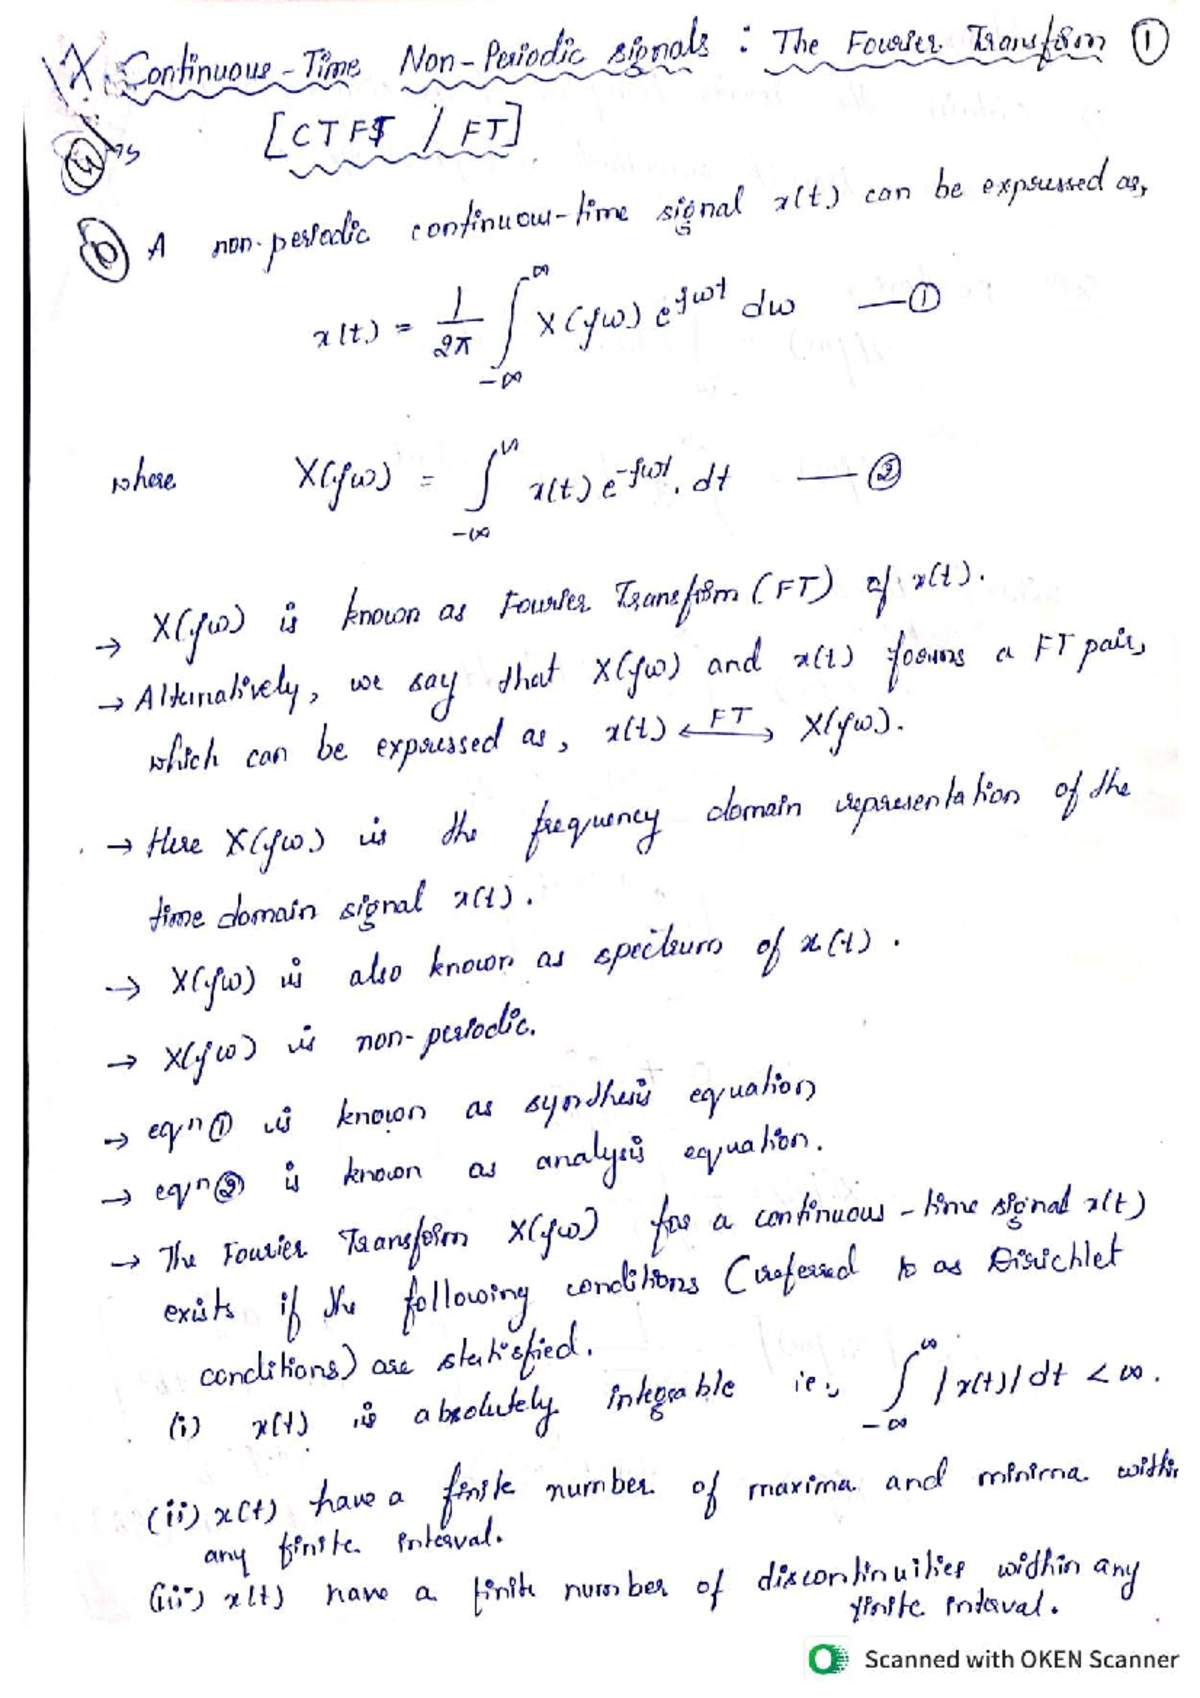 Continuous-Time Non-Periodic signals : The Fourier Transform ①
[CTFT / FT]
A non-periodic continuous-time signal x(t) can be expressed as,
x(t) = 1/2π ∫_{-∞}^{∞} X(jω) e^{jωt} dω —①
where X(jω) = ∫_{-∞}^{∞} x(t) e^{-jωt}. dt —②
→ X(jω) is known as Fourier Transform (FT) of x(t).
→ Alternatively, we say that X(jω) and x(t) forms a FT pair,
which can be expressed as, x(t) ←FT→ X(jω).
→ Here X(jω) is the frequency domain representation of the
time domain signal x(t).
→ X(jω) is also known as spectrum of x(t).
→ X(jω) is non-periodic.
→ eqn ① is known as synthesis equation
→ eqn ② is known as analysis equation.
→ The Fourier Transform X(jω) for a continuous-time signal x(t)
exists if the following conditions (referred to as Dirichlet
conditions) are statisfied.
(i) x(t) is absolutely integrable ie., ∫_{-∞}^{∞} |x(t)| dt < ∞.
(ii) x(t) have a finite number of maxima and minima within
any finite interval.
(iii) x(t) have a finite number of discontinuities within any
finite interval.
Scanned with OKEN Scanner